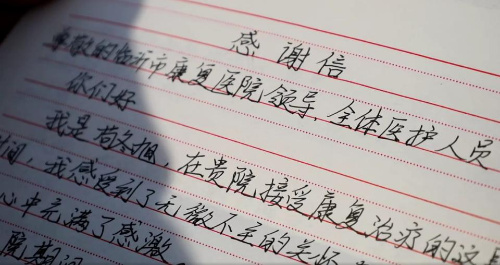 感谢信
尊敬的临沂市康复医院领导、全体医护人员
你们好
我是苟冬梅，在贵院接受康复治疗的这
间，我感受到了无微不至的关怀
心中充满了感激
院期间